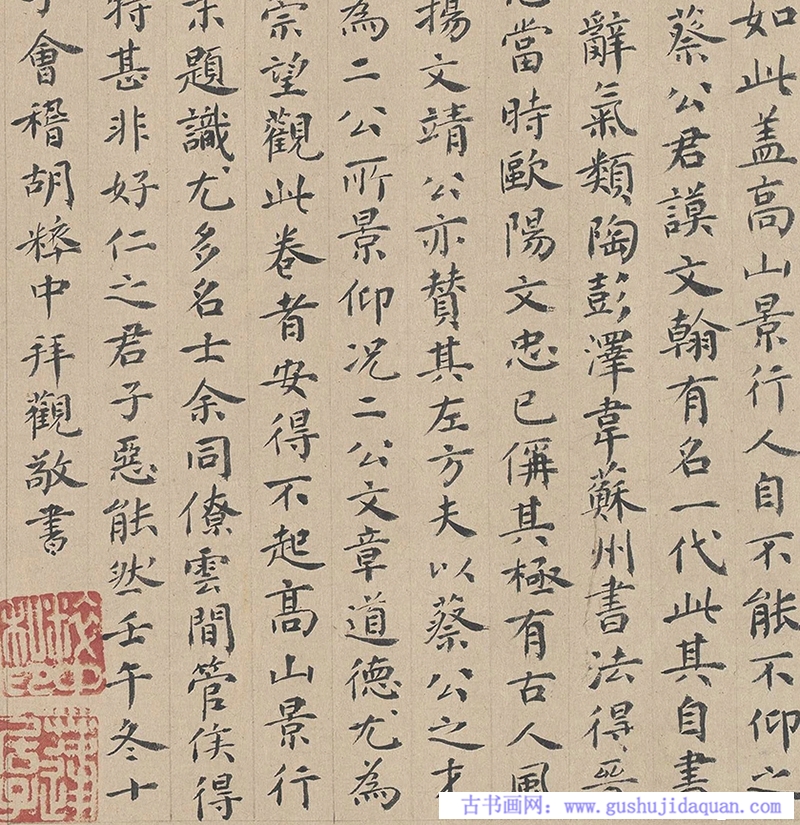 如此盖高山景行人自不能不仰之
蔡公君謨文翰有名一代此其自書
辭氣類陶彭澤韋蘇州書法得晉
當時歐陽文忠已偁其極有古人風
楊文靖公亦贊其左方夫以蔡公之才
為二公所景仰况二公文章道德尤為
宗望觀此卷者安得不起高山景行
末題識尤多名士余同僚雲間管侯得
特甚非好仁之君子惡能然壬午冬十
會稽胡粹中拜觀敬書
古书画网：www.gushujidaquan.com